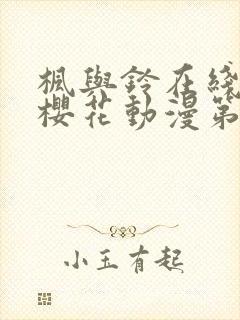 楓與鈴在綫
櫻花動漫第
小玉有起